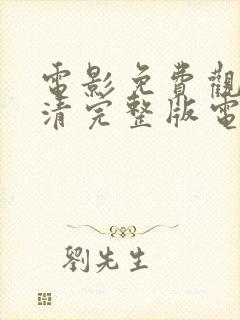 電影免費觀
清完整版電
劉先生